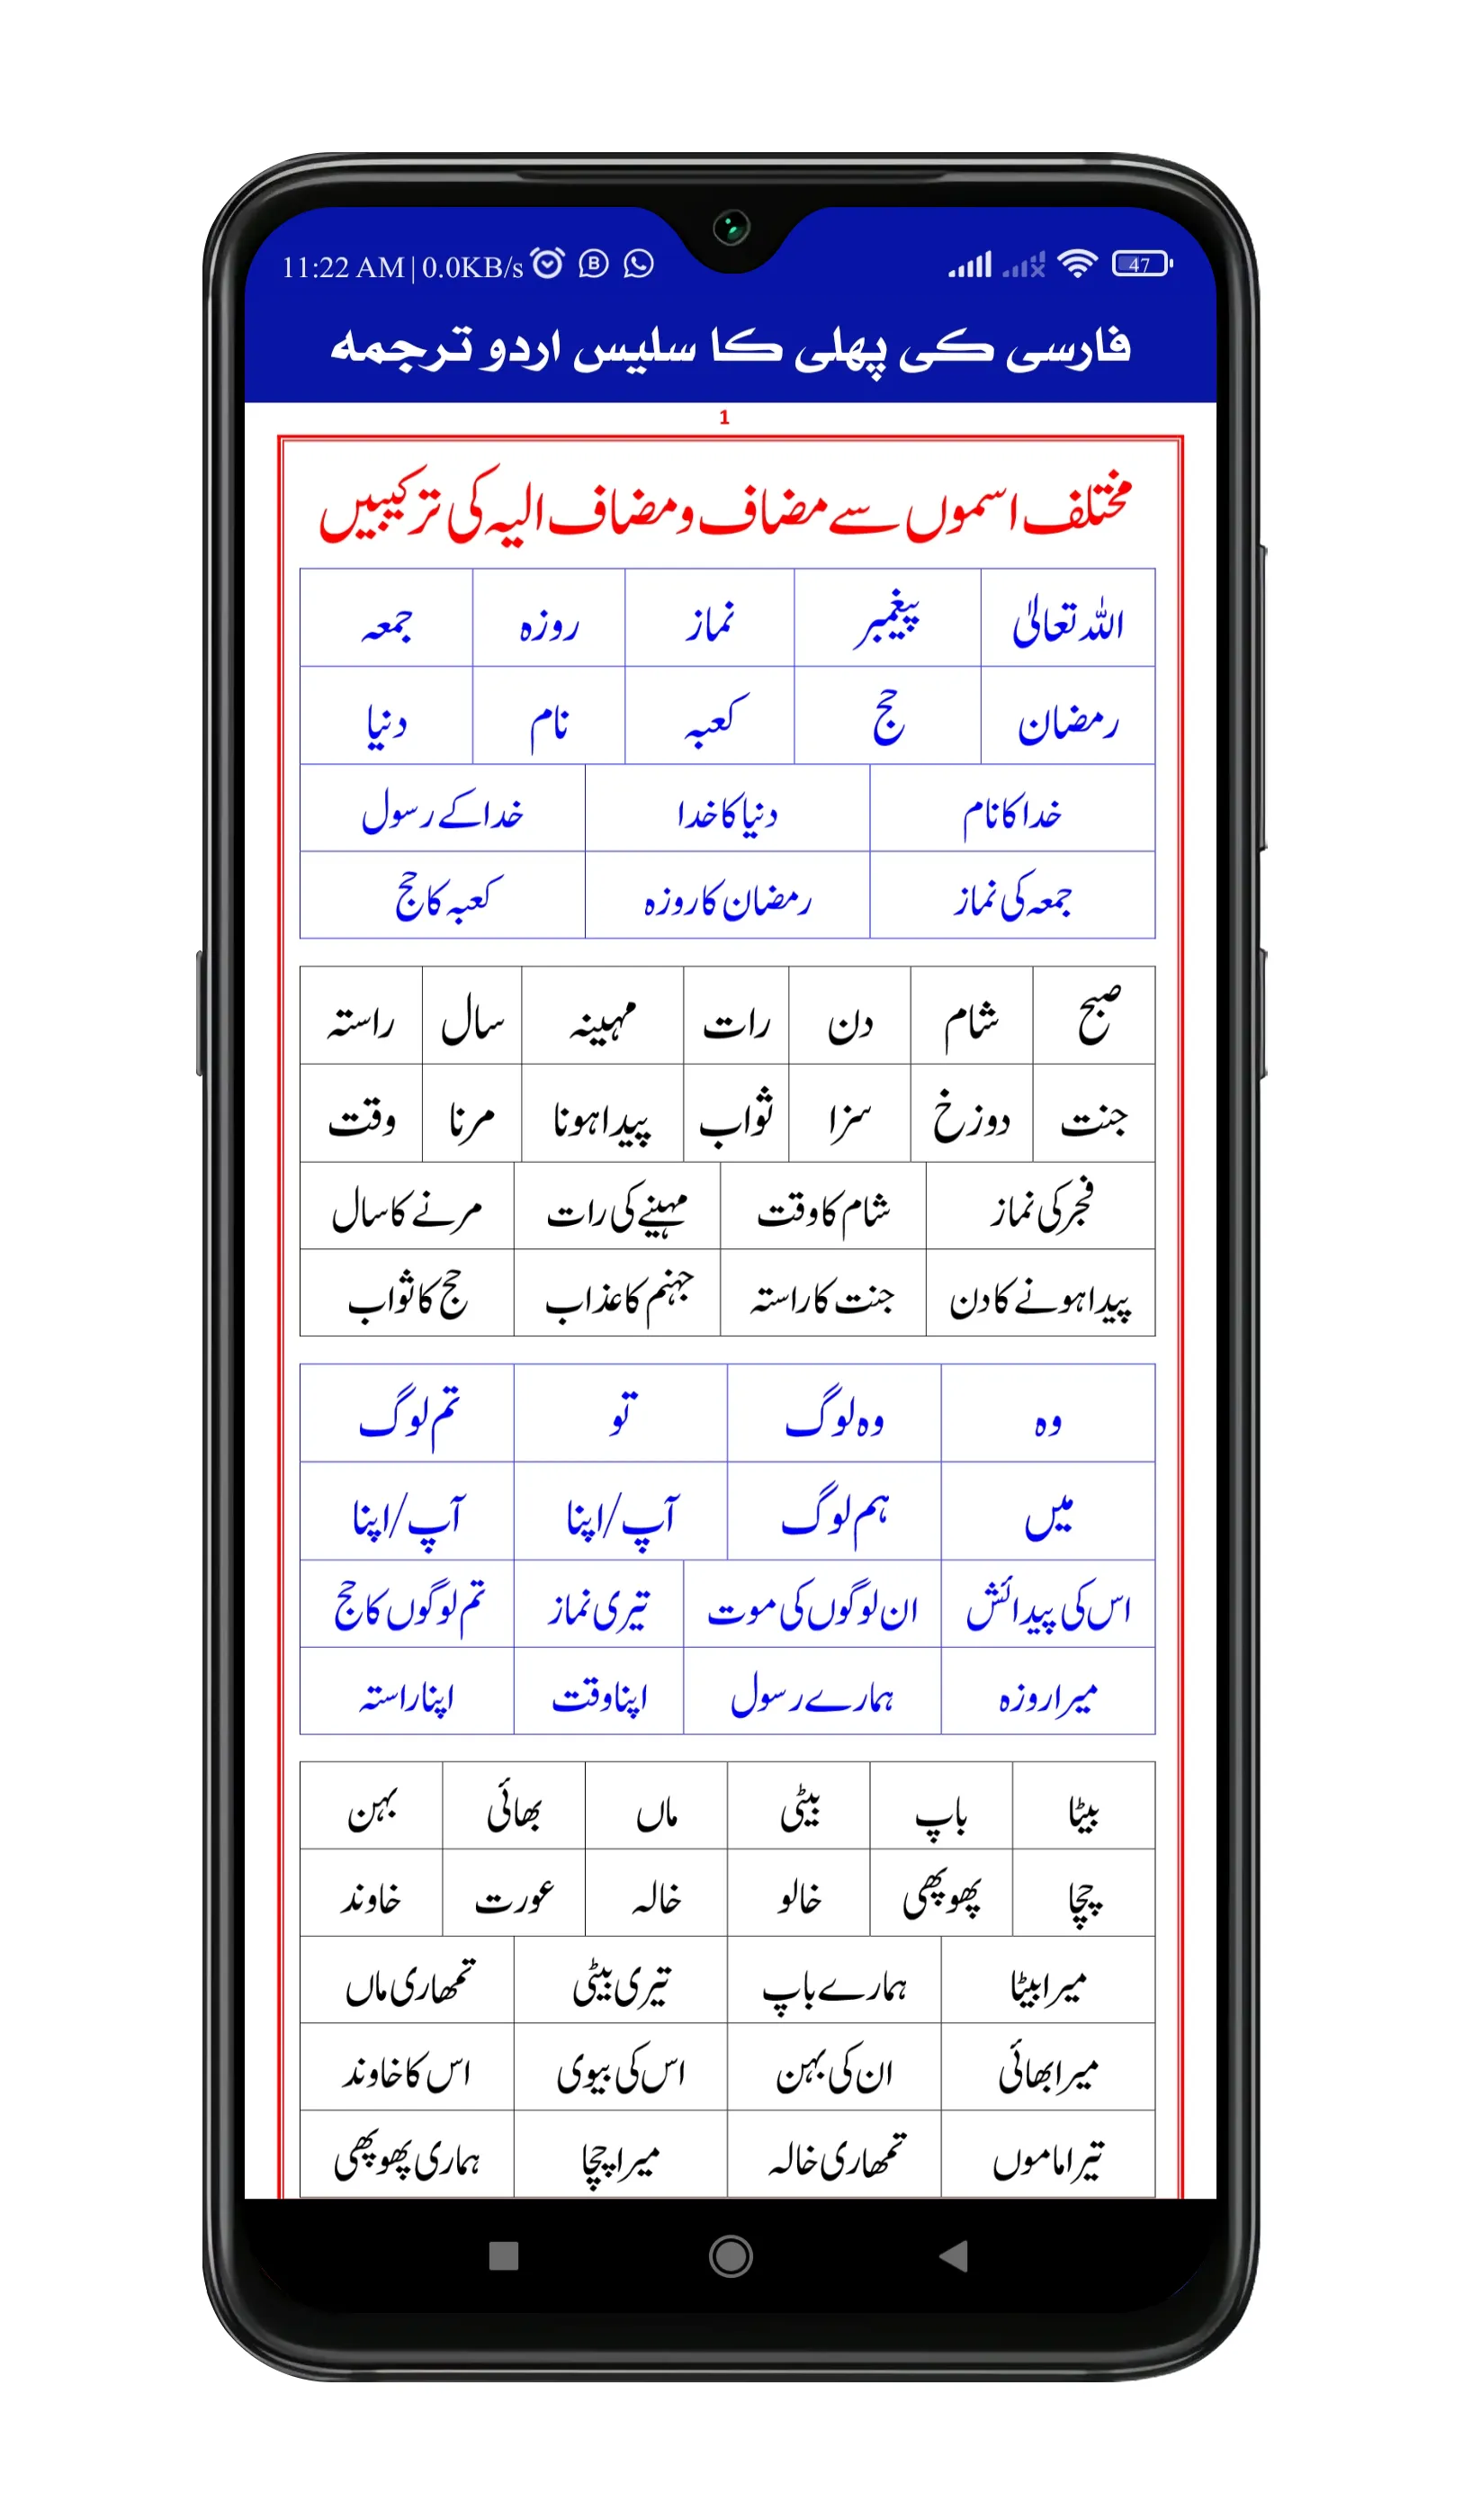 11:22 AM | 0.0KB/s 47
فارسی کی پھلی کا سلیس اردو ترجمہ
1
مختلف اسموں سے مضاف و مضاف الیہ کی ترکیبیں
اللہ تعالیٰ پیغمبر نماز روزہ جمعہ
رمضان حج کعبہ نام دنیا
خدا کا نام دنیا کا خدا خدا کے رسول
جمعہ کی نماز رمضان کا روزہ کعبہ کا حج
صبح شام دن رات مہینہ سال راستہ
جنت دوزخ سزا ثواب پیدا ہونا مرنا وقت
فجر کی نماز شام کا وقت مہینے کی رات مرنے کا سال
پیدا ہونے کا دن جنت کا راستہ جہنم کا عذاب حج کا ثواب
وہ وہ لوگ تو تم لوگ
میں ہم لوگ آپ/اپنا آپ/اپنا
اس کی پیدائش ان لوگوں کی موت تیری نماز تم لوگوں کا حج
میرا روزہ ہمارے رسول اپنا وقت اپنا راستہ
بیٹا باپ بیٹی ماں بھائی بہن
چچا پھوپھی خالو خالہ عورت خاوند
میرا بیٹا ہمارے باپ تیری بیٹی تمھاری ماں
میرا بھائی ان کی بہن اس کی بیوی اس کا خاوند
تیرا ماموں تمھاری خالہ میرا چچا ہماری پھوپھی